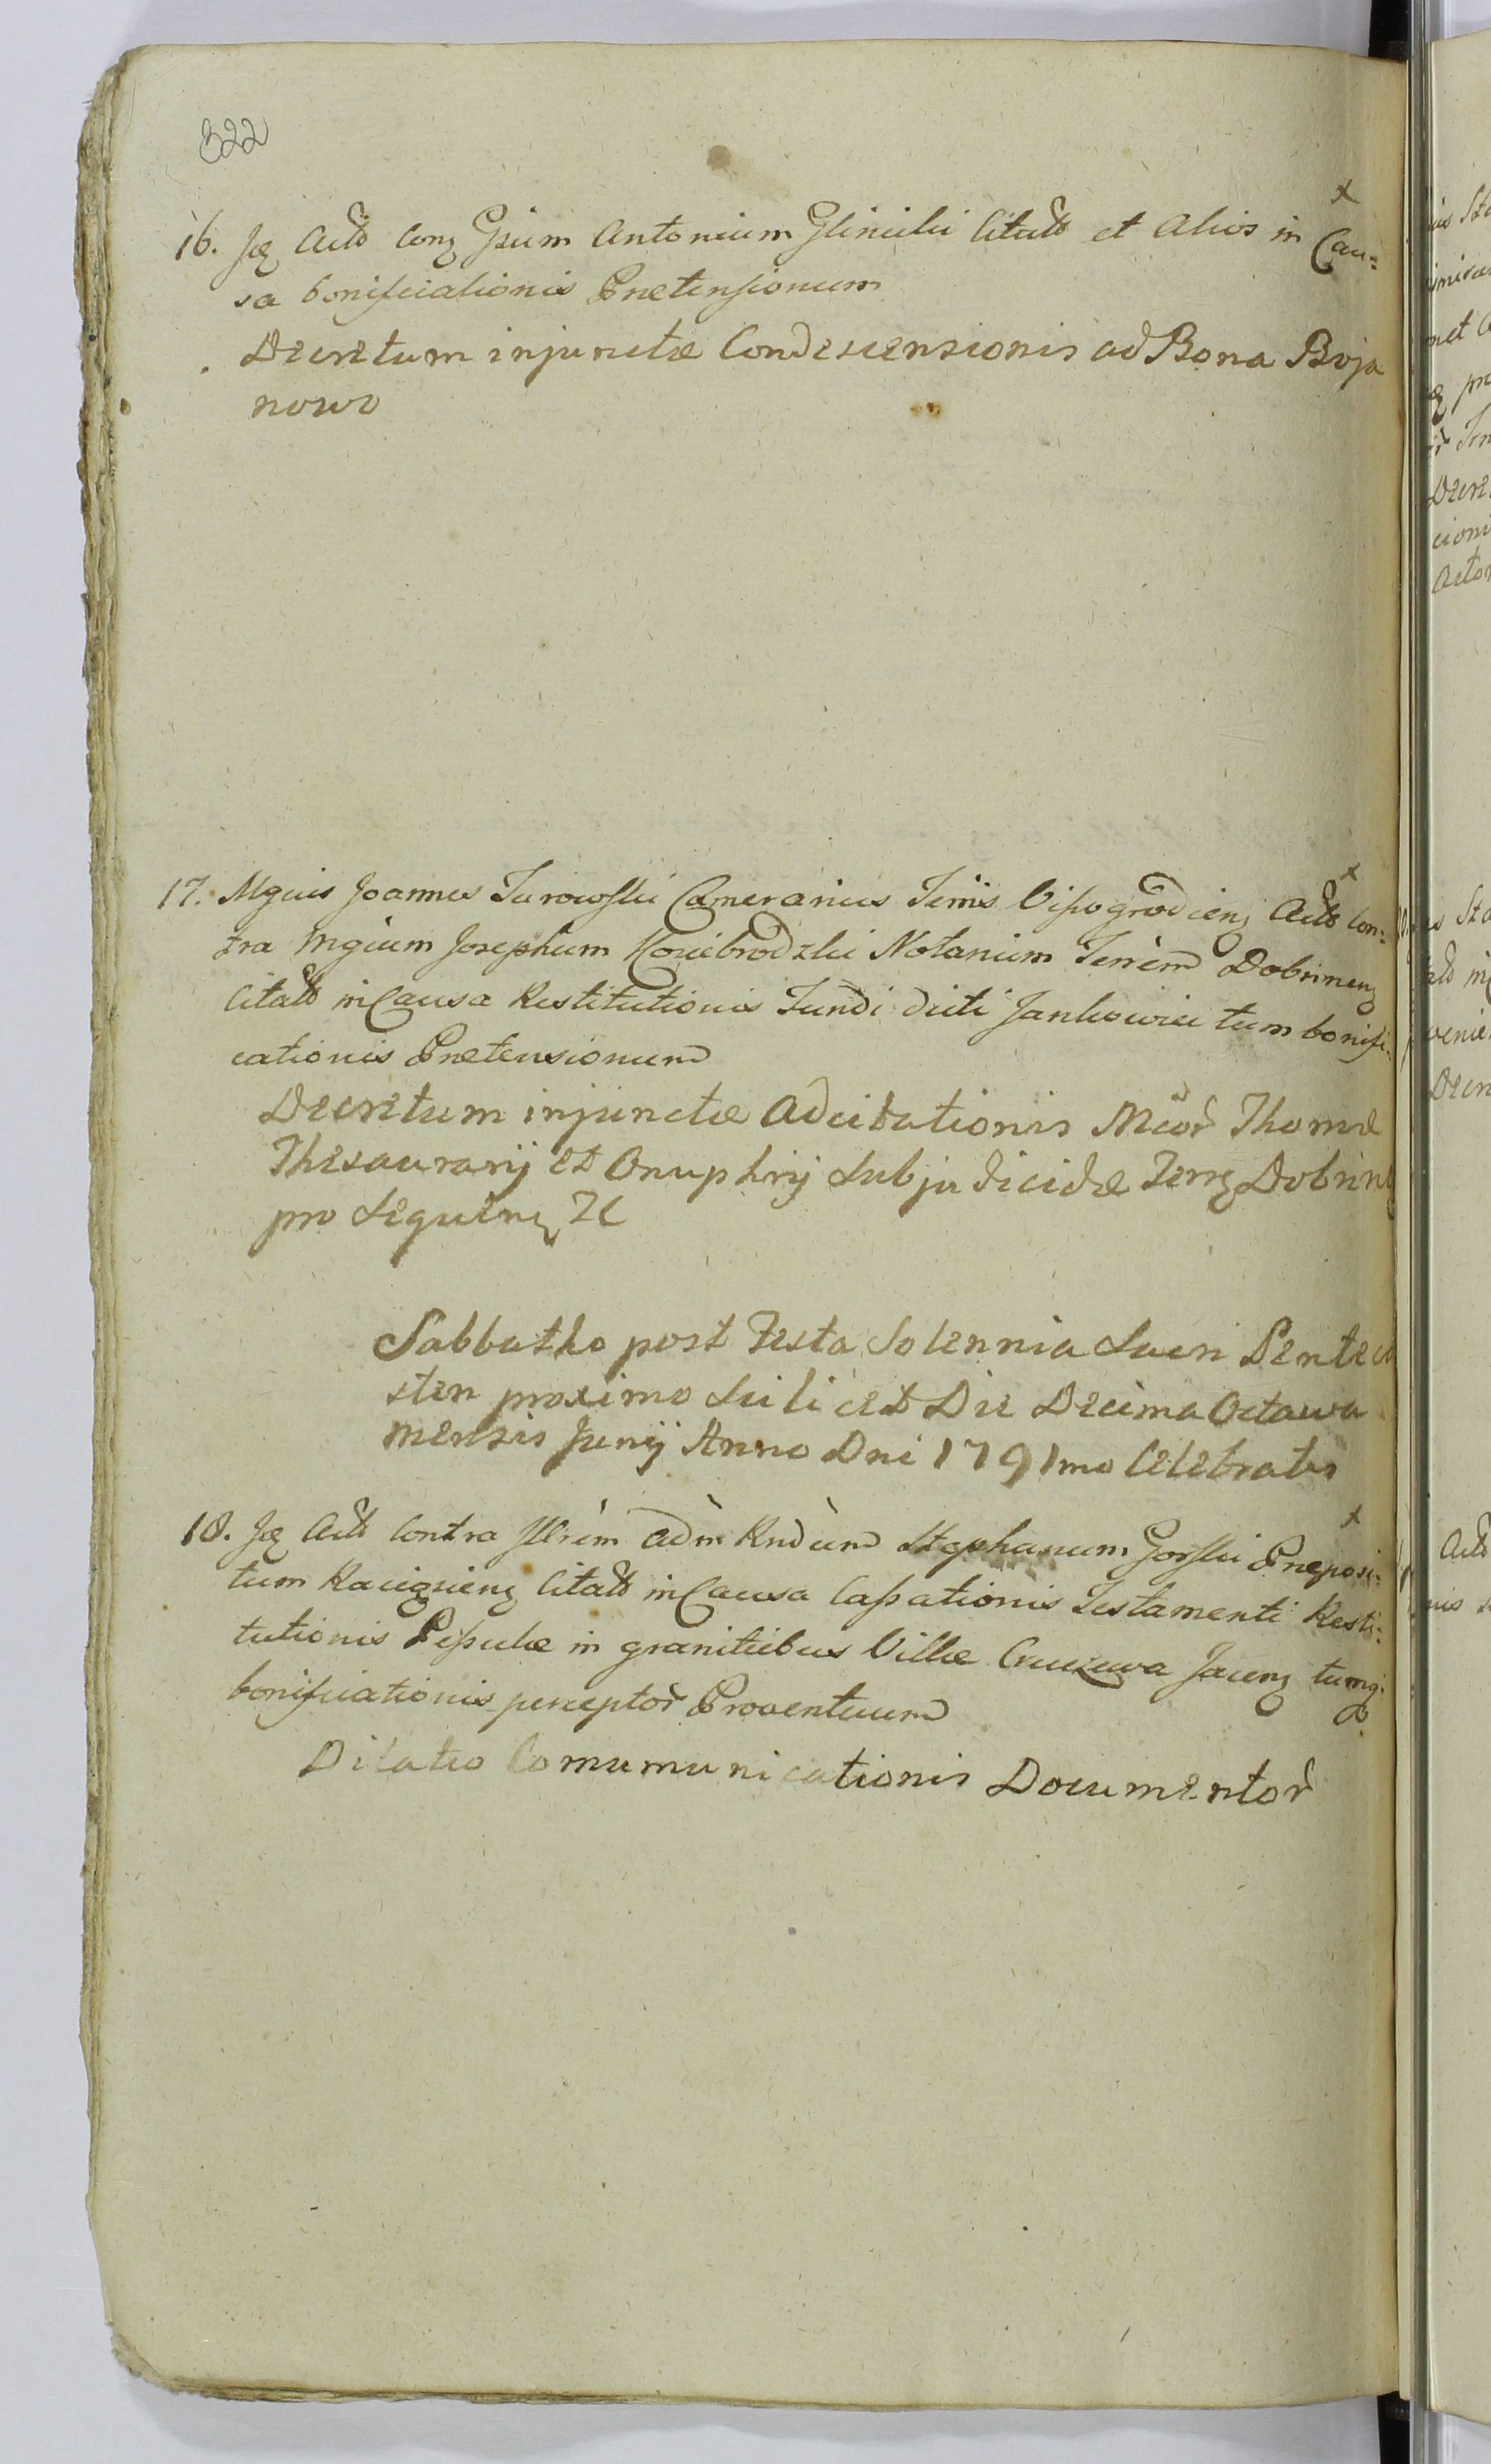 322
16. Jz Actō conz Gsum Antonium Glinicki Citatō et Alios in Cau=
sa bonificationis Prætensionum
Decretum injunctæ Condescensionis ad Bona Boja
nowo
17. Mgcus Joannes Turowski Camerarius Terris Visogrodienz Actō con=
tra Mgcum Josephum Koziebrodzki Notarium Terrem Dobrinenz
Citatō in Causa Restitutionis Fundi dicti Jankowice tum bonifi=
cationis Prætensionum
Decretum injunctæ Adcitationis Mcor Thomæ
Thesaurarij et Onuphrij Subjudicidæ Terrz Dobrinz
pro Sequenz
Sabbatho post Festa Solennia Sacri Penteco
sten proximo Scilicet Die Decima Octava
mensis Junij Anno Dni 1791mo Celebratis
18. Jz Actō Contra Illrem Adm Rndum Stephanum Gorski Præposi=
tum Raciązienz Citatō in Causa Cassationis Testamenti Resti=
tutionis in granitiebus Villæ Jacenz tumq.
bonificationis perceptor Proventuum
Dilatio Comumunicationis Documentor